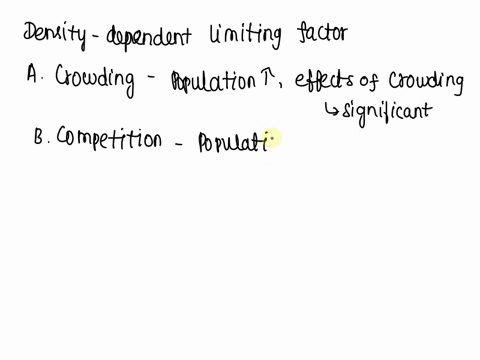 Density-dependent limiting factor
A. Crowding - Population ↑, effects of crowding
↳ significant
B. Competition - Populati